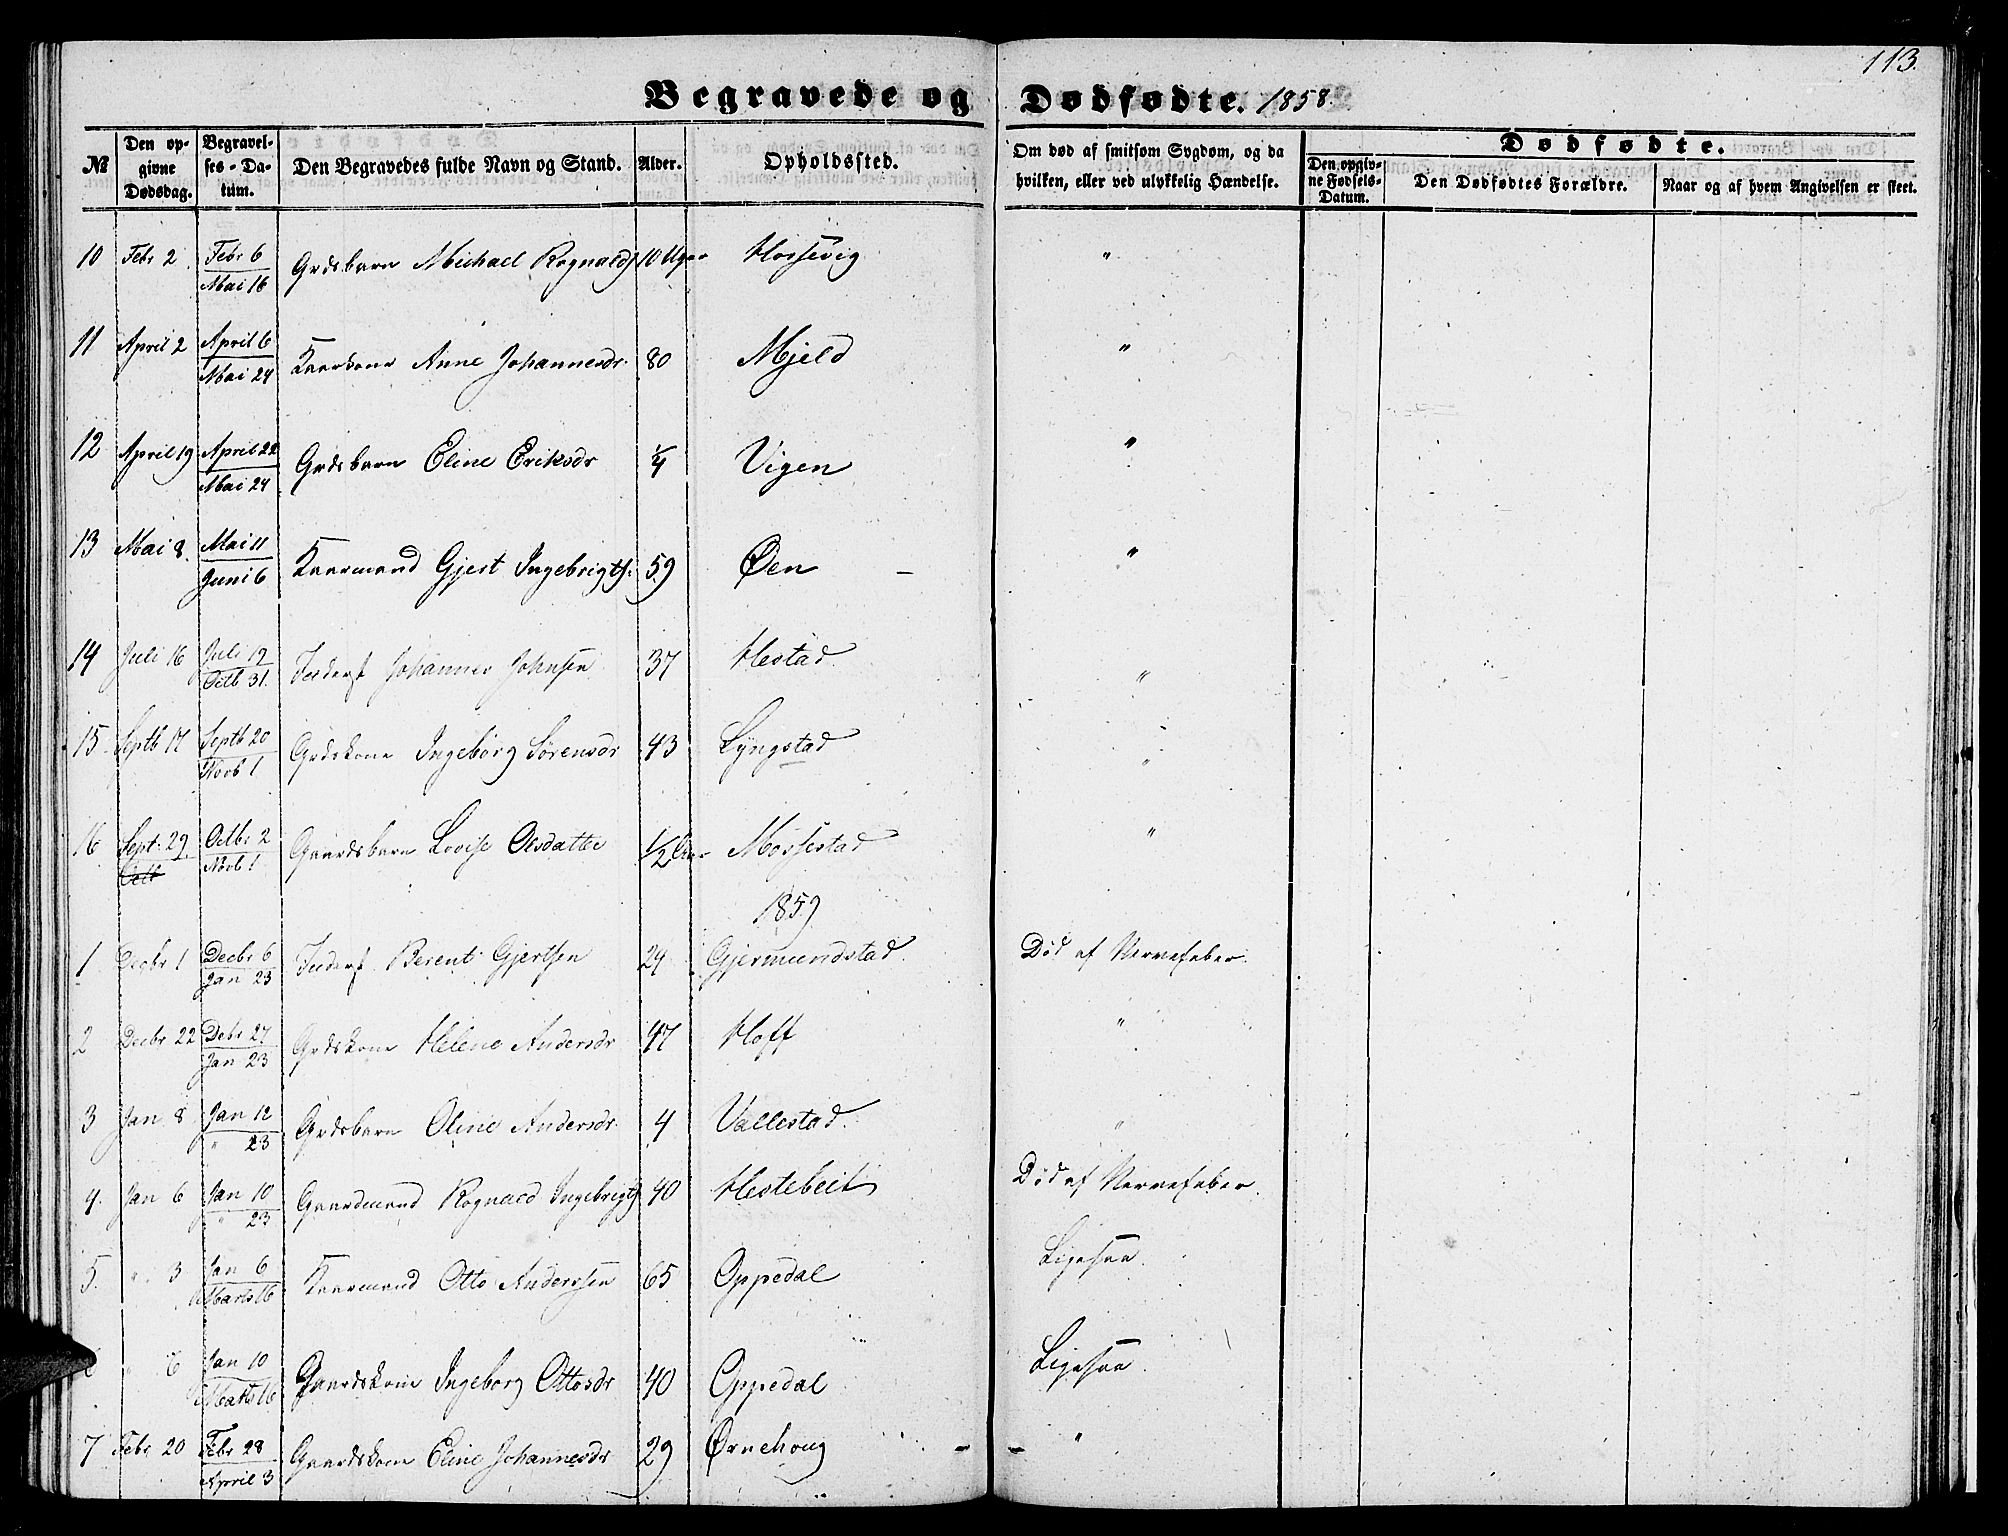 113.
Begravede og Dødfødte. 1858.
№ Den opgivne Dødsdag. Begravelses-Datum. Den Begravedes fulde Navn og Stand. Alder. Opholdssted. Om død af smitsom Sygdom, og da hvilken, eller ved ulykkelig Hændelse. Dødfødte.
Den opgivne Fødsels-Datum. Den Dødfødtes Forældre. Naar og af hvem Angivelsen er skeet.
10 Febr 2 Febr 6 Mai 16 Grdsbarn Michael Rognalds 10 Uger Hossevig "
11 April 2 April 6 Mai 24 Kaarkone Anne Johannesdr. 80 Mjeld "
12 April 19 April 22 Mai 24 Grdsbarn Eline Eriksdr 1/4 Vigen "
13 Mai 8. Mai 11 Juni 6 Kaarmand Gjert Ingebrigts: 59 Øen "
14 Juli 16 Juli 19 Octb 31. Inderst Johannes Johnsen 37 Hestad "
15 Septb 17 Septb 20 Novb 1 Grdskone Ingeborg Sørensdr 43 Lyngstad "
16 Sept: 29. Octb Octbr 2 Novb 1 Gaardsbarn Lovise Olsdatter 1/2 Aar Mossestad "
1859
1 Decbr 1 Decbr 6 Jan 23 Inderst Berent Gjertsen 24 Gjermundstad. Død af Nervefeber.
2 Decbr 22 Debr 27 Jan 23 Grdskone Helene Andersdr 47 Hoff "
3 Jan 8 Jan 12 " 23 Grdsbarn Oline Andersdr. 4 Vallestad. "
4. Jan 6 Jan 10 " 23 Gaardmand Rognald Ingebrigts 40 Hestebeit Død af Nervefeber.
5. " 3 Jan 6 Marts 16 Kaarmand Otto Anderssen 65 Oppedal Ligesaa.
" 6 Jan 10 Marts 16 Gaardskone Ingeborg Ottosdr 40 Oppedal Ligesaa.
7 Febr 20 Febr 28 April 3 Gaardskone Eline Johannesdr 29 Ørnehoug "